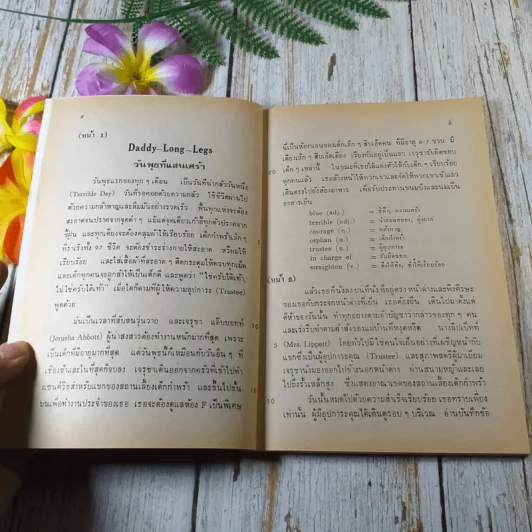 ๔
(หน้า 1)
Daddy—Long—Legs
วันพุธที่แสนเศร้า
วันพุธแรกของทุก ๆ เดือน เป็นวันที่น่ากลัววันหนึ่ง
(Terrible Day) วันที่รอคอยด้วยความกลัว ใช้ชีวิตผ่านไป
ด้วยความกล้าหาญและลืมมันอย่างรวดเร็ว พื้นทุกแห่งจะต้อง
สะอาดจนปราศจากจุดดำ ๆ แม้แต่จุดเดียวเก้าอี้ทุกตัวปราศจาก
ฝุ่นผง และทุกเตียงจะต้องคลุมทำให้เรียบร้อย เด็กกำพร้าเล็ก ๆ
ที่ร่าเริงทั้ง 97 ชีวิต จะต้องชำระร่างกายให้สะอาด หวีผมให้
เรียบร้อย และใส่เสื้อผ้าที่สะอาด ๆ ติดกระดุมให้ครบทุกเม็ด
และเด็กทุกคนจะถูกสั่งให้เป็นเด็กดี และพูดว่า "ใช่ครับใต้เท้า,
ไม่ใช่ครับใต้เท้า" เมื่อใดก็ตามที่ผู้ให้ความอุปการะ (Trustee)
พูดด้วย
มันเป็นเวลาที่สับสนวุ่นวาย และเจรุชา แอ๊บบอทท์
(Jerusha Abbott) ผู้น่าสงสารต้องทำงานหนักมากที่สุด เพราะ
เป็นเด็กที่มีอายุมากที่สุด แต่วันพุธนี้ก็เหมือนกับวันอื่น ๆ ที่
เชื่องช้าและในที่สุดก็จบลง เจรุชาเดินออกจากครัวที่เข้าไปทำ
แซนด์วิชสำหรับแขกของสถานเลี้ยงเด็กกำพร้า และขึ้นไปชั้น
บนเพื่อทำงานประจำของเธอ เธอจะต้องดูแลห้อง F เป็นพิเศษ
5
10
15
๕
นี่เป็นห้องนอนของเด็กเล็ก ๆ สิบเอ็ดคน ที่มีอายุ 4-7 ขวบ มี
เตียงเล็ก ๆ สิบเอ็ดเตียง เรียงกันอยู่เป็นแถว เจรุชารับผิดชอบ
เด็ก ๆ เหล่านี้ ในขณะที่เธอได้แต่งตัวให้กับเด็ก ๆ เรียบร้อย
ทุกคนแล้ว
เดินตรงไปยังห้องอาหาร เพื่อรับประทานขนมปังและนมเป็น
อาหารเย็น
blue (adj.) = สีฟ้า, ความเศร้า
terrible (adj.) = น่าสยดสยอง, ดุมาก
courage (n.) = กล้าหาญ
orphan (n.) = เด็กกำพร้า
trustee (n.) = ผู้อุปการะ
in charge of = รับผิดชอบ
straighten (v.) = ดึงให้ตึง, ทำให้เรียบร้อย
(หน้า 2)
(Mrs. Lippett)
แขกซึ่งเป็นผู้อุปการะคุณ (Trustee) และสุภาพสตรีผู้มาเยี่ยม
เจรุชานั่งมองออกไปข้างนอกหน้าต่าง ผ่านสนามหญ้าและเลย
ไปยังรั้วเหล็กสูง ซึ่งแสดงอาณาเขตของสถานเลี้ยงเด็กกำพร้า
วันนั้นหมดไปด้วยความสำเร็จเรียบร้อย เธอทราบเพียง
เท่านั้น ผู้มีอุปการะคุณได้เดินดูรอบ ๆ บริเวณ อ่านบันทึกข้อ
5
10